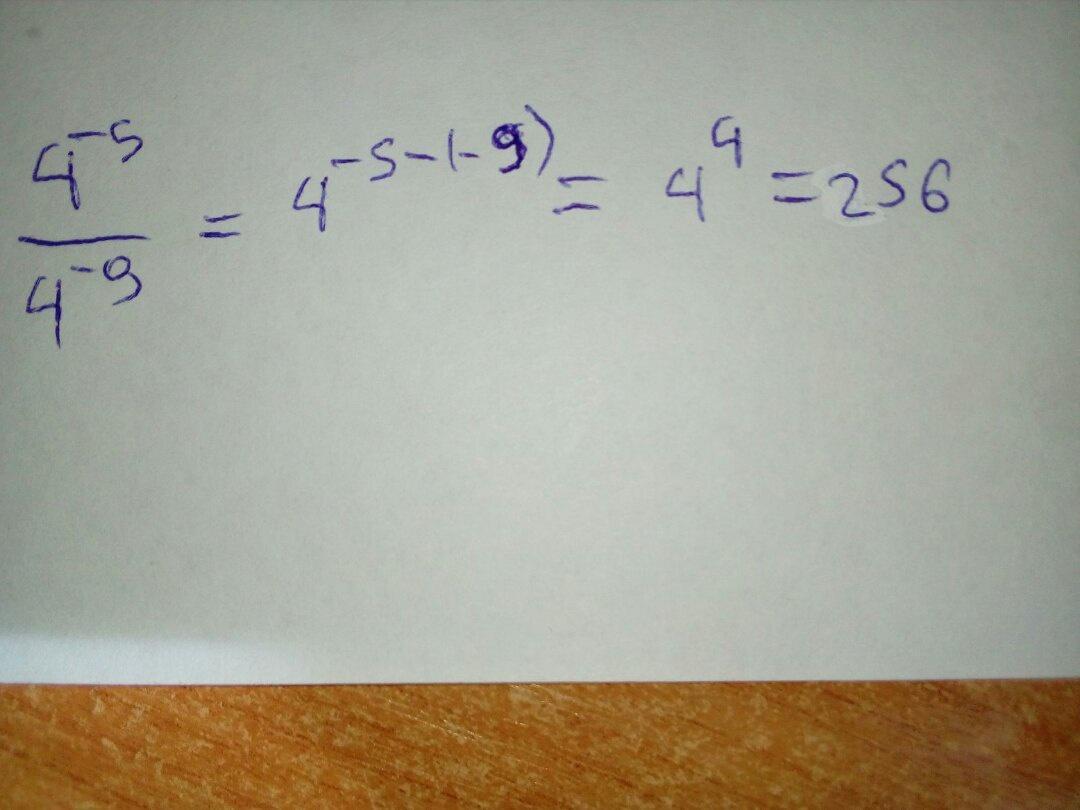 4⁻⁵/4⁻⁹ = 4⁻⁵⁻⁽⁻⁹⁾ = 4⁴ = 256